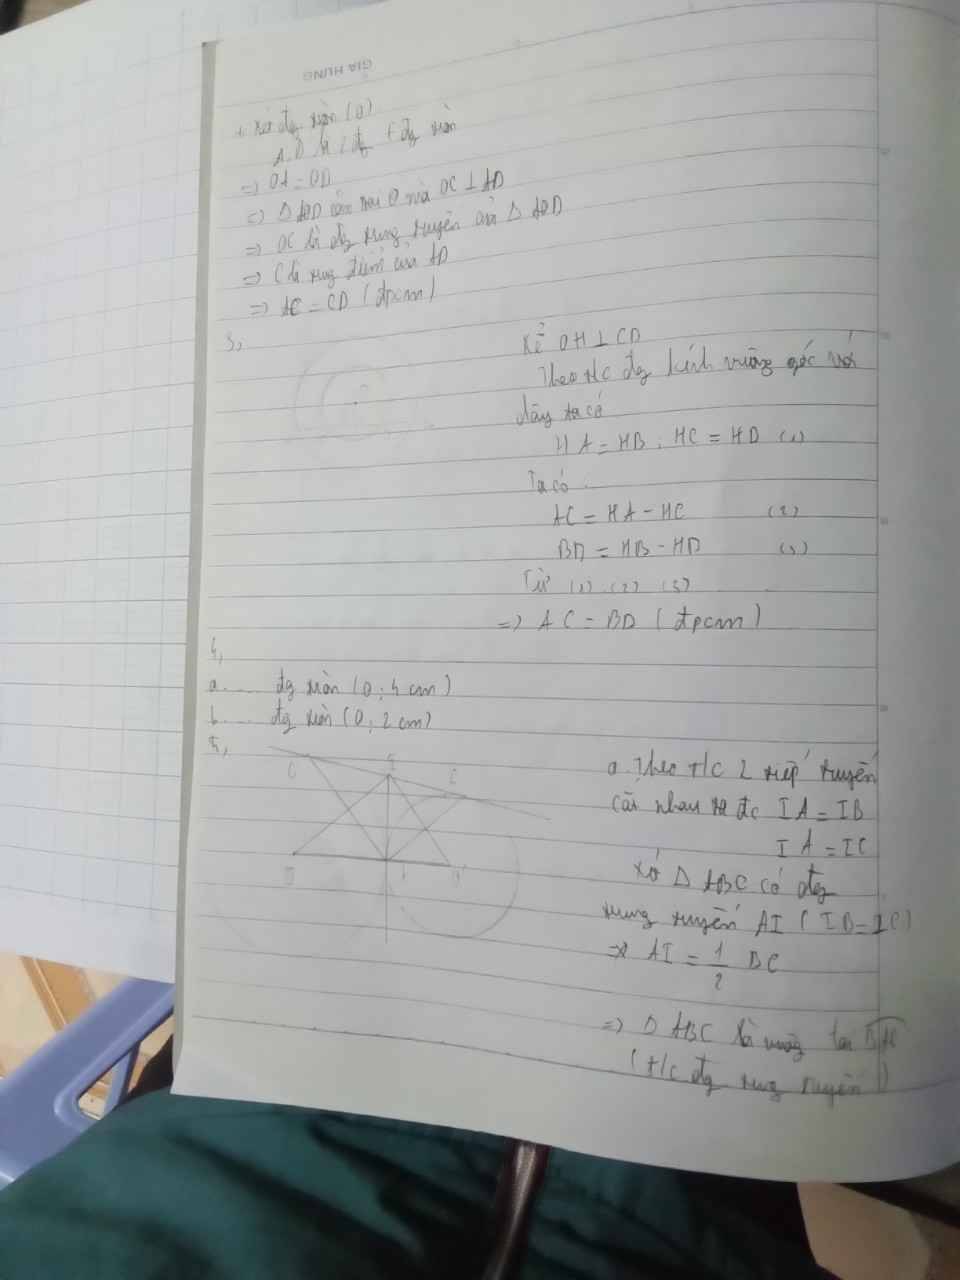 GIA HUNG
+ Xét đg tròn (O)
A, D là 2 đ' ∈ đg tròn
=> OA = OD
=> Δ AOD cân tại O mà OC ⊥ AD
=> OC là đg trung tuyến của Δ AOD
=> C là trung điểm của AD
=> AC = CD (đpcm)
3,
Kẻ OH ⊥ CD
Theo t/c đg kính vuông góc với
dây ta có
HA = HB ; HC = HD (1)
Ta có
AC = HA - HC (2)
BD = HB - HD (3)
Từ (1) (2) (3)
=> AC = BD (đpcm)
4,
a. đg tròn (O; 4 cm)
b. đg tròn (O; 2 cm)
5,
a. Theo t/c 2 tiếp tuyến
cắt nhau ta đc IA = IB
IA = IC
Xét Δ ABC có đg
trung tuyến AI (IB = IC)
=> AI = 1/2 BC
=> Δ ABC là vuông tại BAC
(t/c đg trung tuyến)